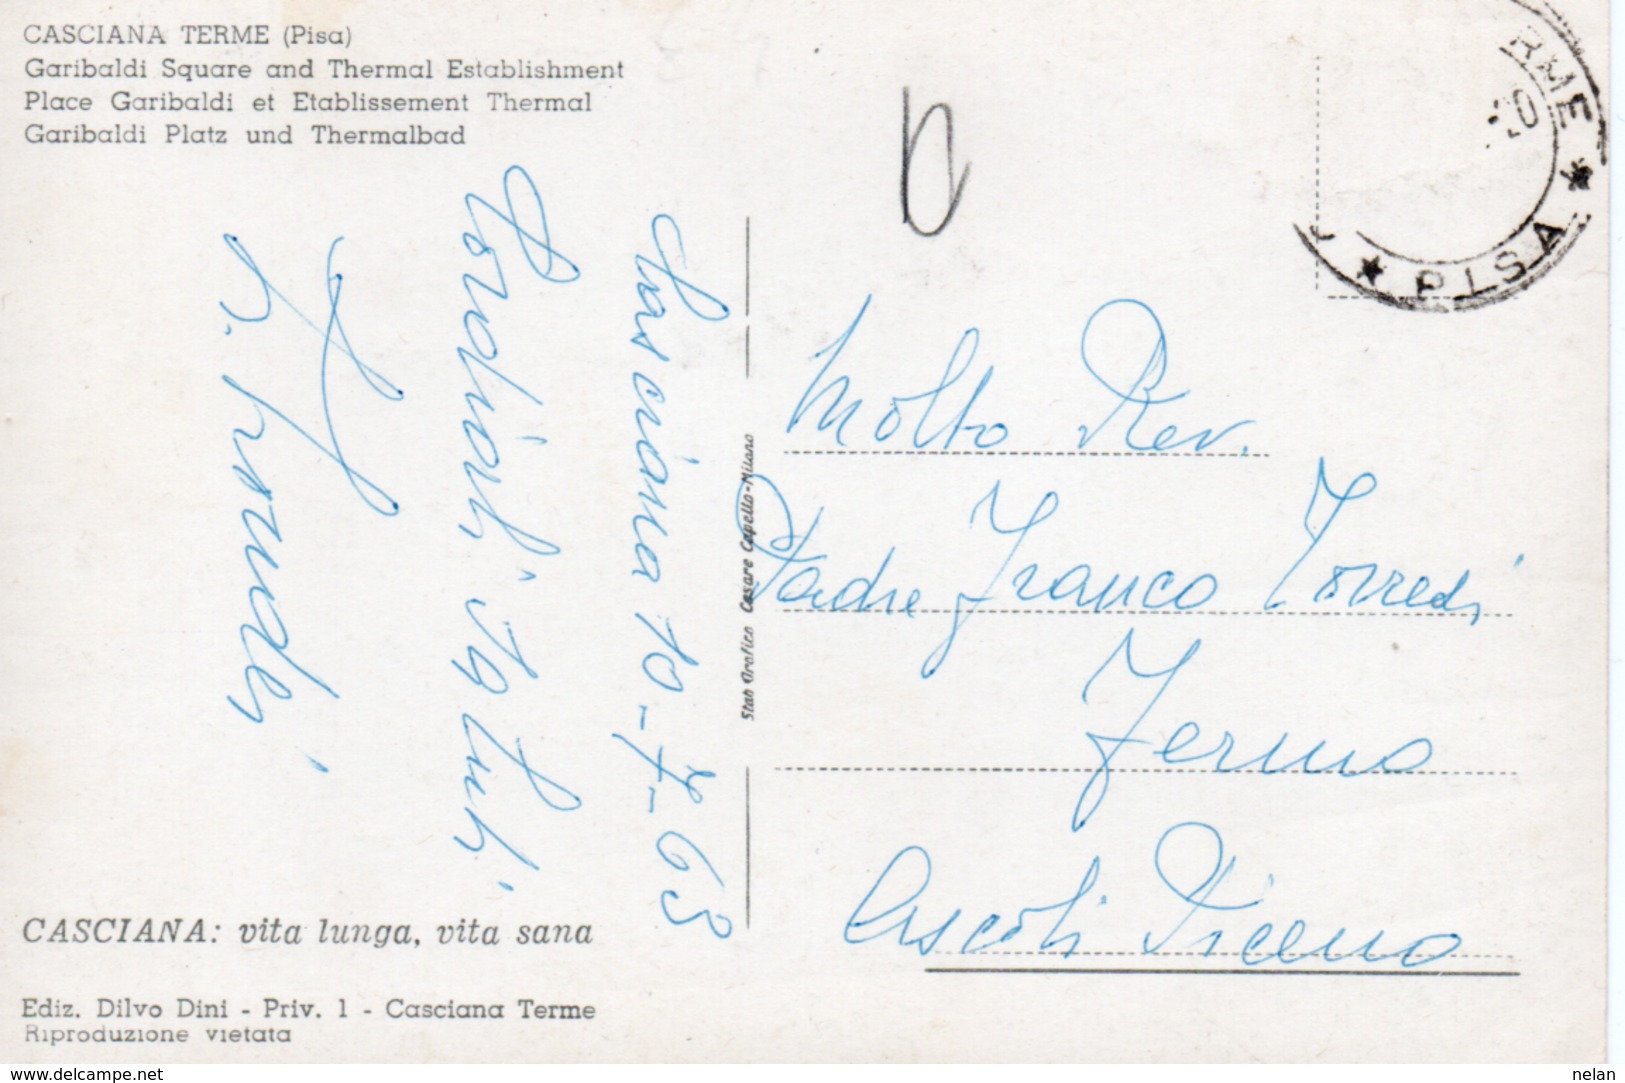 CASCIANA TERME (Pisa)
Garibaldi Square and Thermal Establishment
Place Garibaldi et Etablissement Thermal
Garibaldi Platz und Thermalbad
Casciana 10-7-63
Cordiali saluti
CASCIANA: vita lunga, vita sana
Ediz. Dilvo Dini - Priv. 1 - Casciana Terme
Riproduzione vietata
Stab Grafico Cesare Capello-Milano
RME
PISA
Molto Rev.
Padre Franco Torredi
Fermo
Ascoli Piceno
www.delcampe.net
nelan